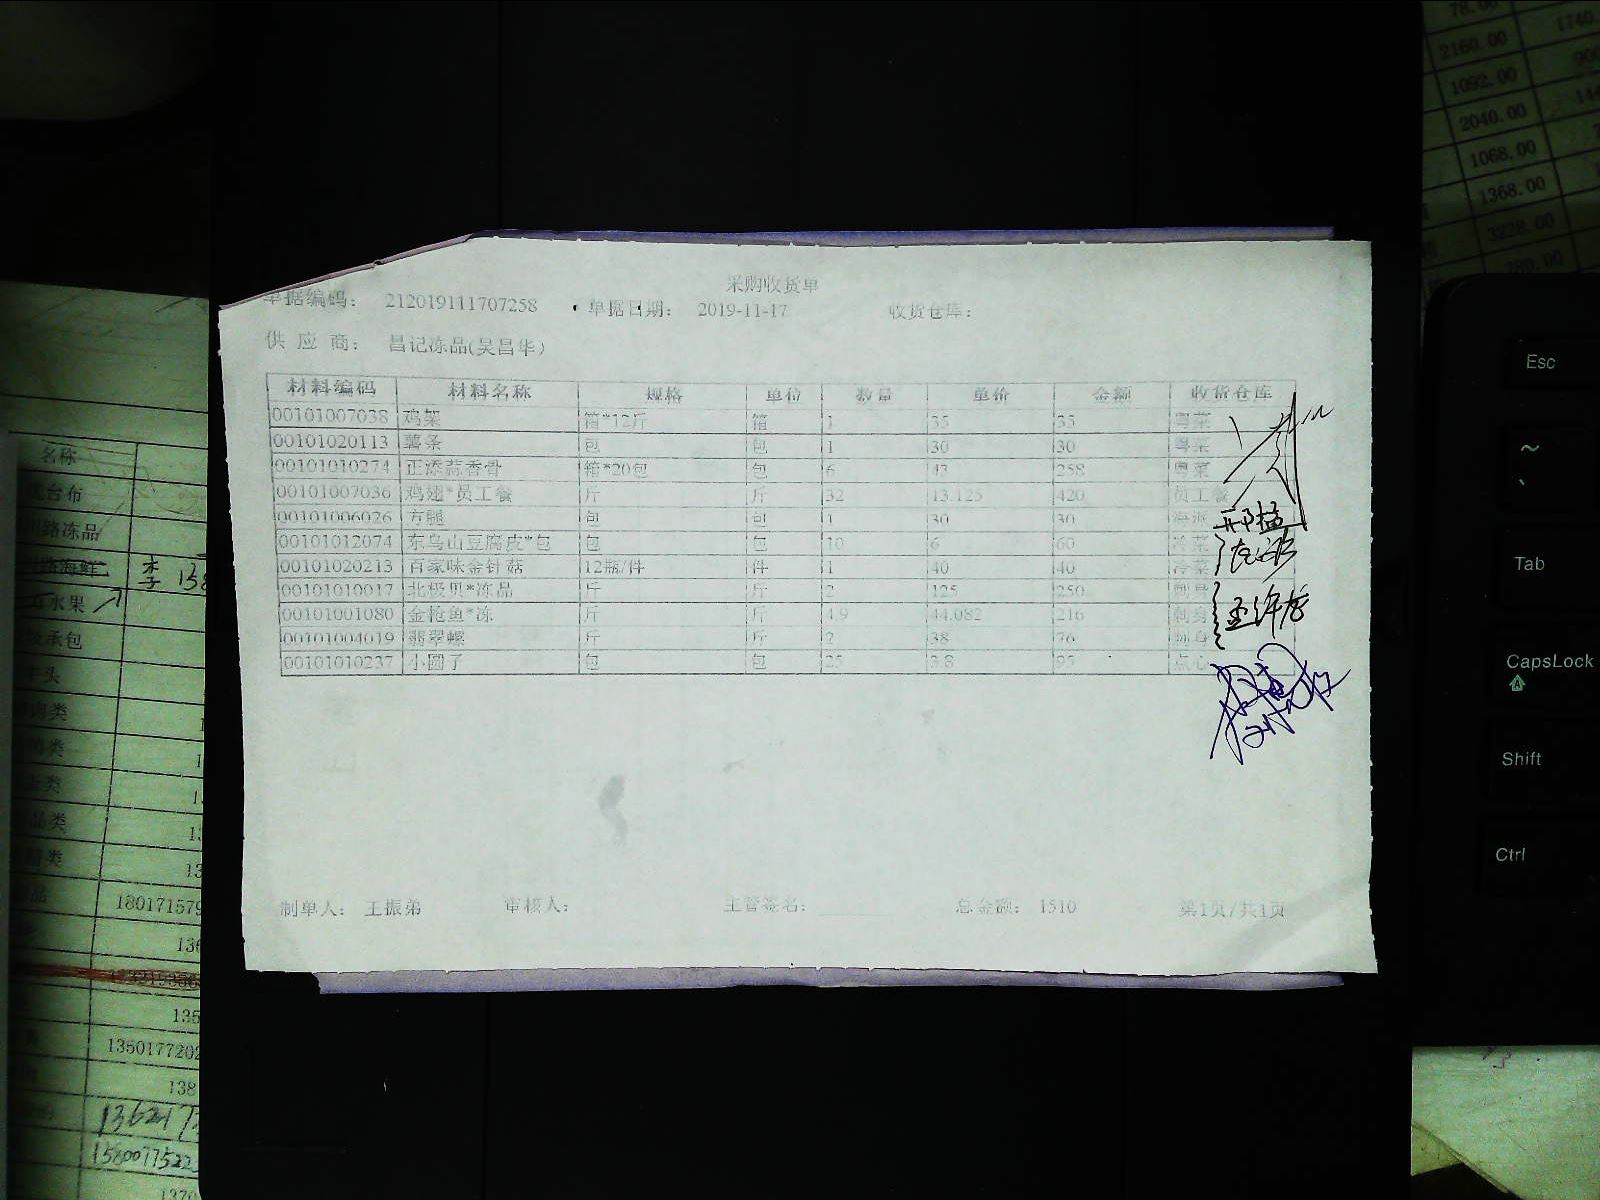 采购收货单
单据编码： 212019111707258 单据日期： 2019-11-17 收货仓库：
供 应 商： 昌记冻品(吴昌华)
材料编码 材料名称 规格 单位 数量 单价 金额 收货仓库
00101007038 鸡架 箱*12斤 箱 1 35 35 粤菜
00101020113 薯条 包 包 1 30 30 粤菜
00101010274 正添蒜香骨 箱*20包 包 6 43 258 粤菜
00101007036 鸡翅*员工餐 斤 斤 32 13.125 420 员工餐
00101006026 方腿 包 包 1 30 30 海派
00101012074 东乌山豆腐皮*包 包 包 10 6 60 冷菜
00101020213 百家味金针菇 12瓶/件 件 1 40 40 冷菜
00101010017 北极贝*冻品 斤 斤 2 125 250 刺身
00101001080 金枪鱼*冻 斤 斤 4.9 44.082 216 刺身
00101004019 翡翠螺 斤 斤 2 38 76 刺身
00101010237 小圆子 包 包 25 3.8 95 点心
制单人： 王振弟 审核人： 主管签名： 总金额： 1510 第1页/共1页
名称
台布
路冻品
海鲜 李 138
水果
承包
头
肉类
类
类
品类
类
品 180171579
136
135
1350177202
138
136217
1580077522
1370
78.00
2160.00 1740.
1092.00 900
2040.00 144
1068.00
1368.00
3228.00
780.00
Esc
~
Tab
CapsLock
A
Shift
Ctrl